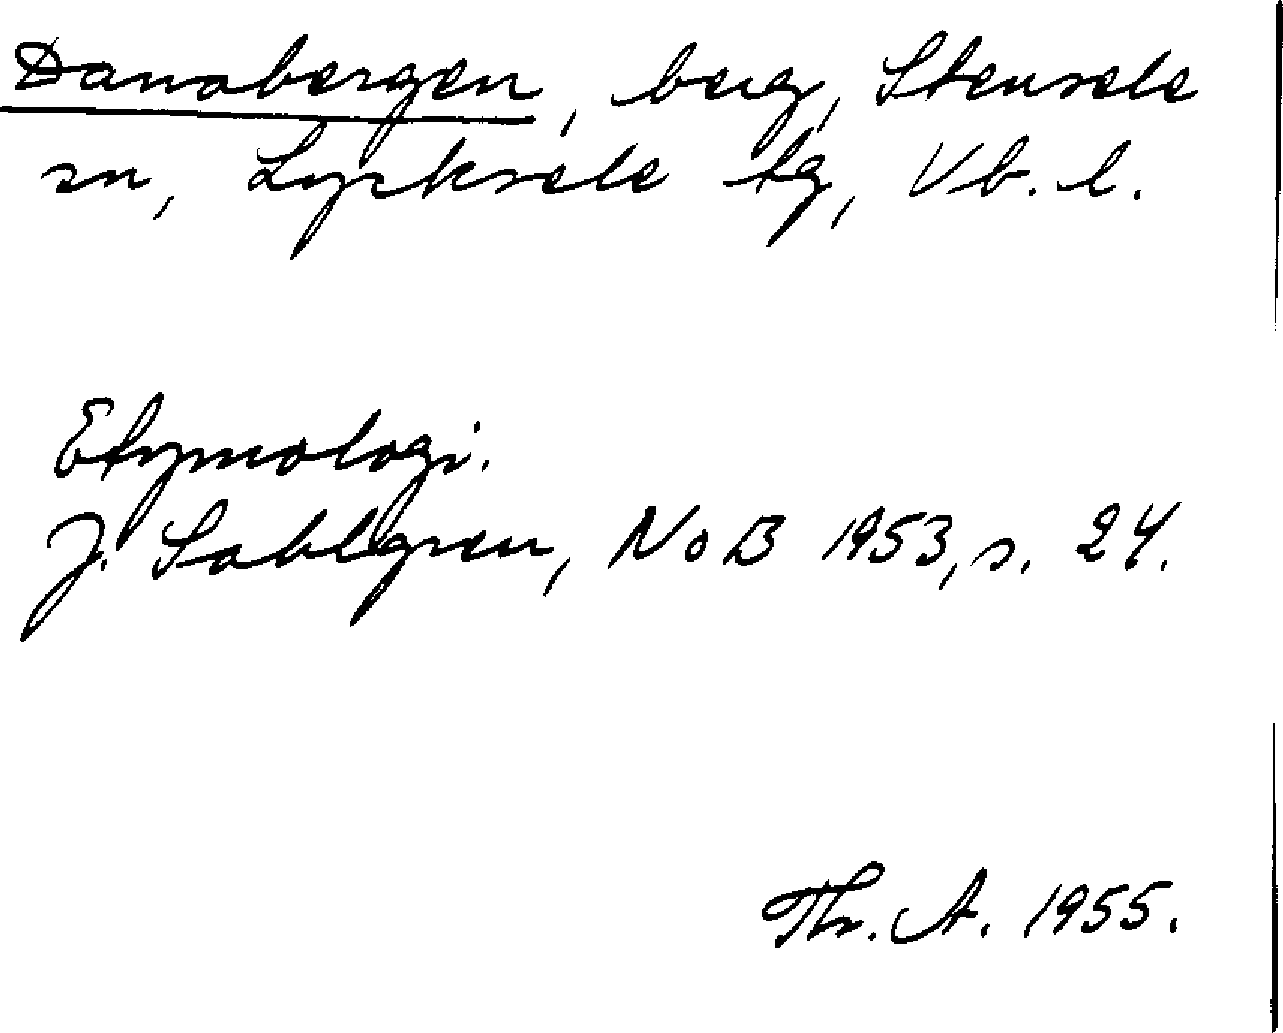 Danabergen, berg, Stensele
sn, Lycksele tg, Vb. l.
Etymologi.
J. Sahlgren, NoB 1953, s. 24.
Th. A. 1955.